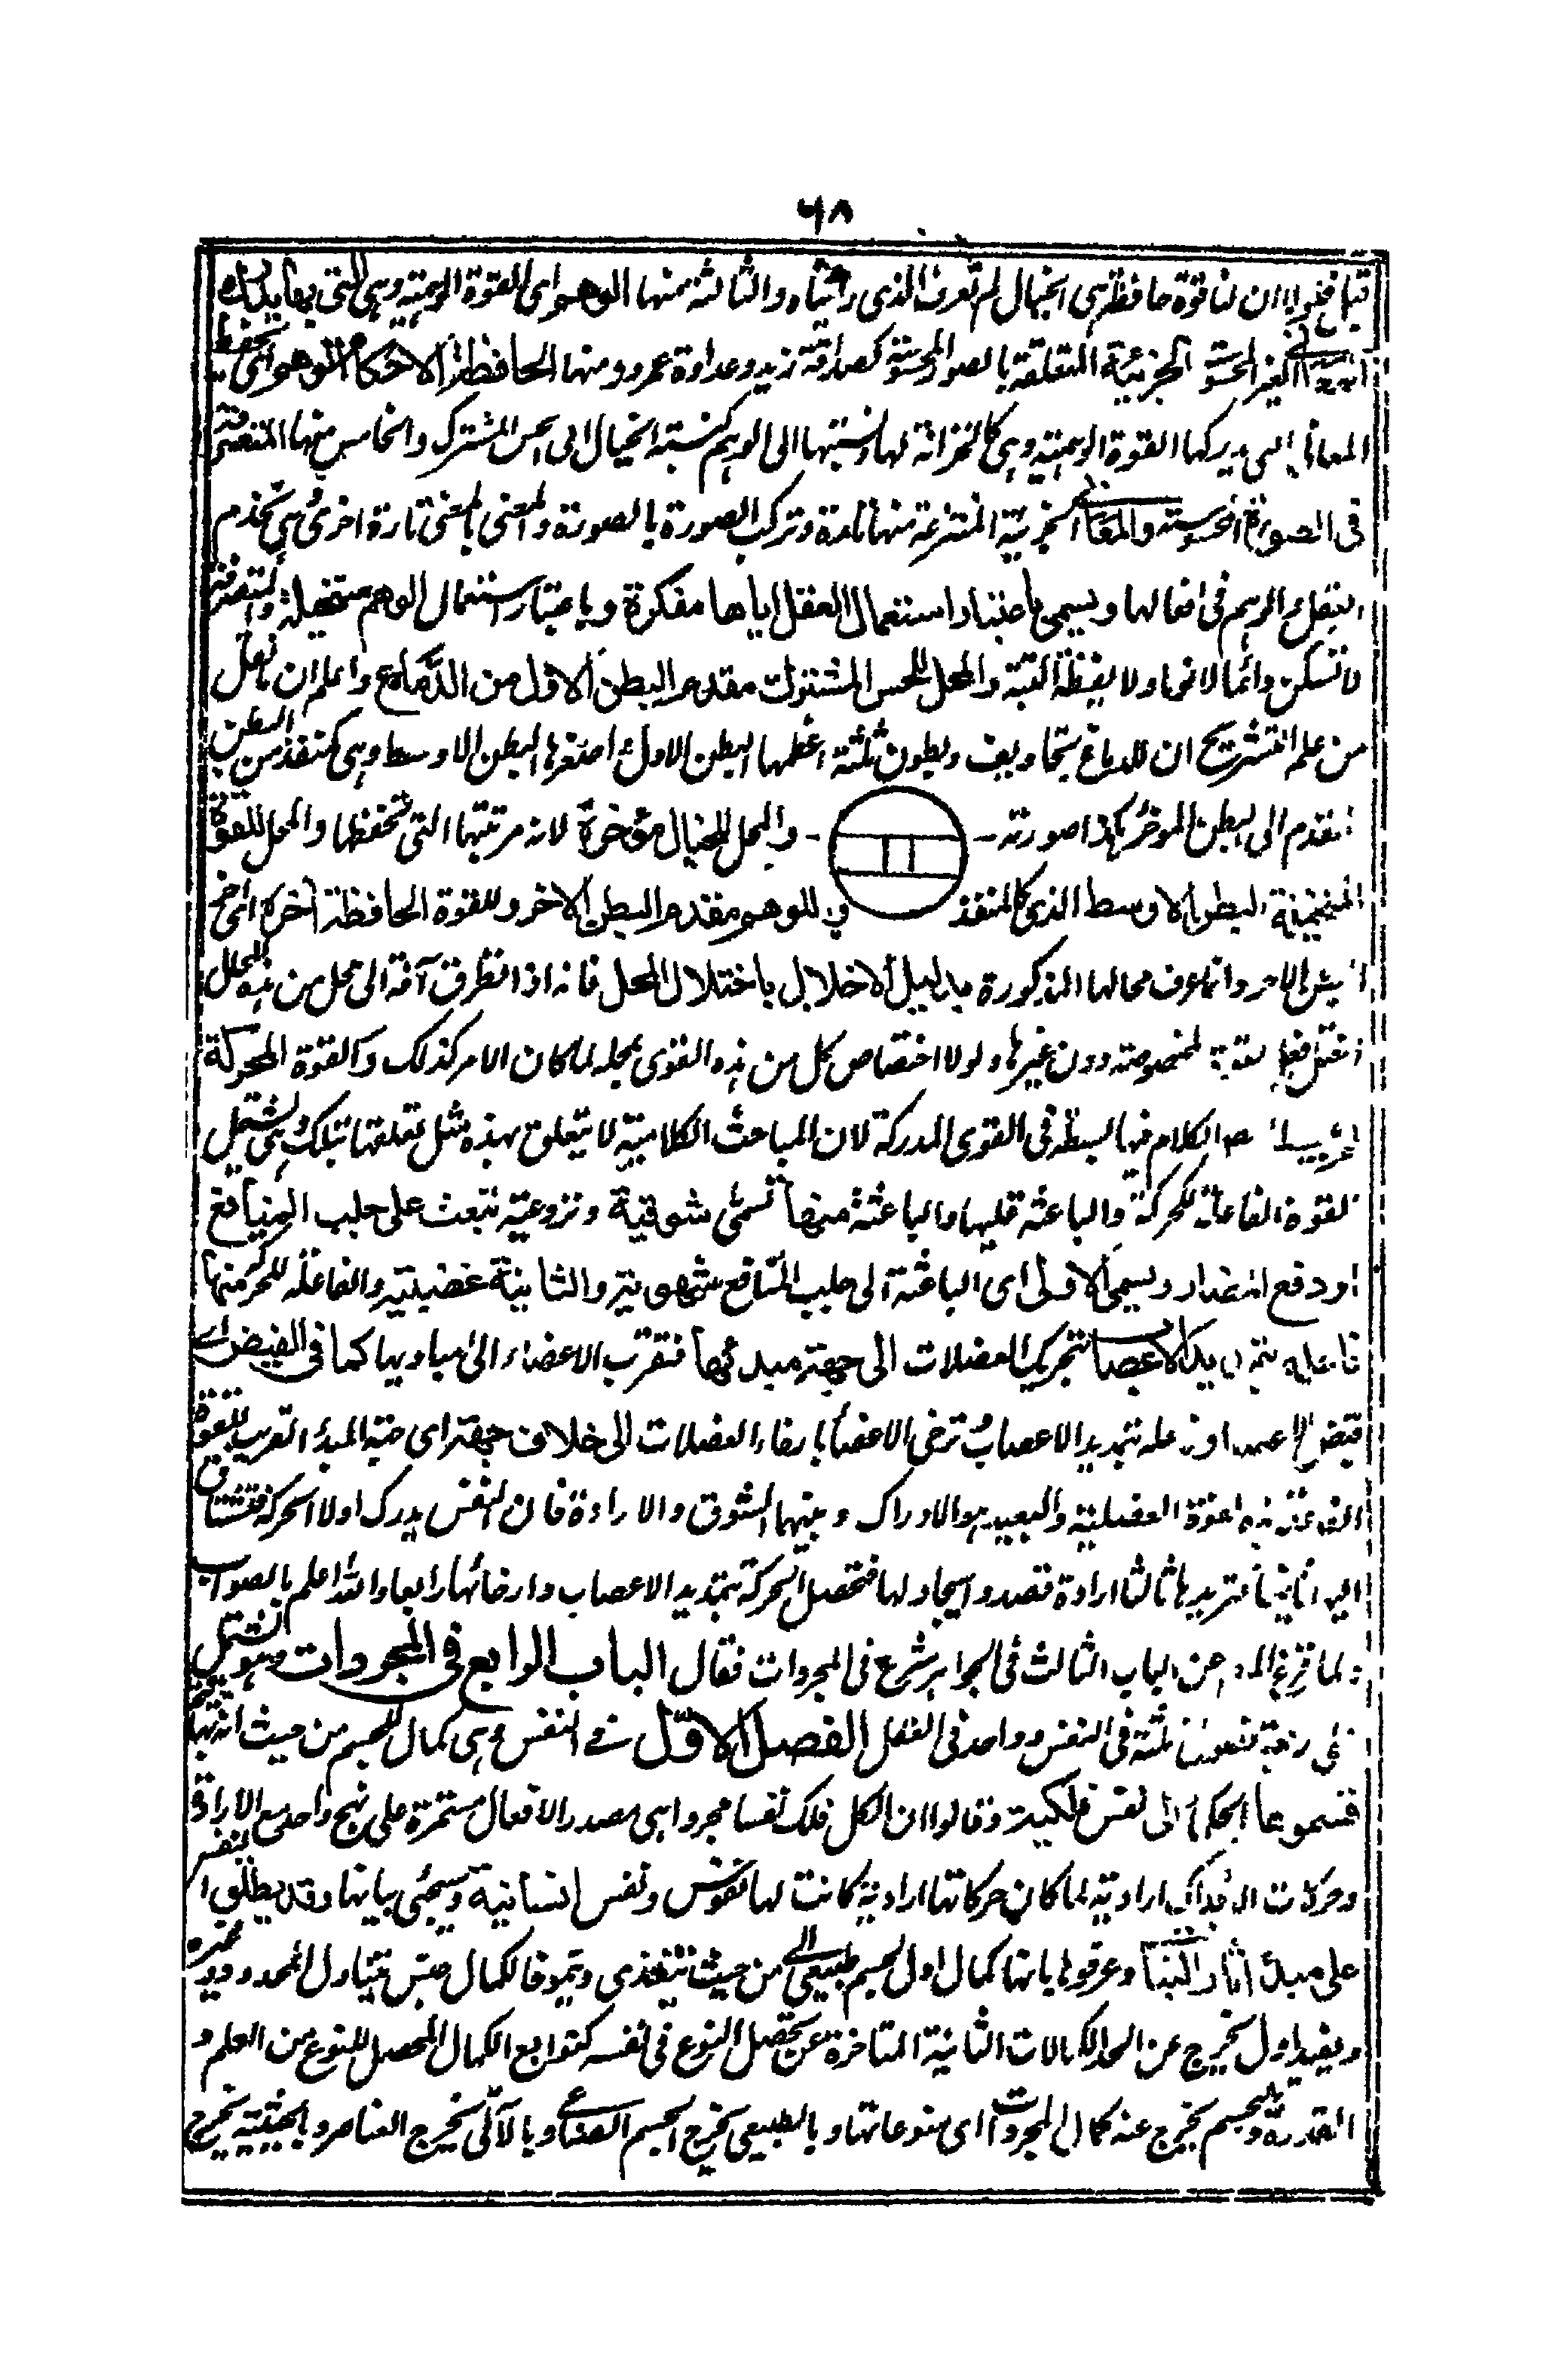 ٦٨
فلولا ان لنا قوة حافظة هى الخيال لم نعرف الذى رأيناه والثالثة منها الوهم اى القوة الوهمية وهى التى بها يدرك
الغير المحسوسة الجزئية المتعلقة بالصور المحسوسة كصداقة زيد وعداوة عمرو ومنها الحافظة لاحكام الوهم اى تحفظ
المعانى التى يدركها القوة الوهمية وهى كالخزانة لها ونسبتها الى الوهم كنسبة الخيال الى الحس المشترك والخامس منها المتصرفة
فى الصورة المحسوسة والمعانى الجزئية المنتزعة منها تارة وتركب الصورة بالصورة والمعنى بالمعنى تارة اخرى هى تخدم
العقل والوهم فى افعالها ويسمى باعتبار استعمال العقل اياها مفكرة وباعتبار استعمال الوهم متخيلة والمتصرفة
لا تسكن دائما لا نوما ولا يقظة البتة والمحل للحس المشترك مقدم البطن الاول من الدماغ واعلم ان
من علم التشريح ان للدماغ تجاويف وبطون ثلثة اعظمها البطن الاول واصغرها البطن الاوسط وهى كمنفذ من البطن
المقدم الى البطن الموخر هكذا صورته والمحل للخيال مؤخره لانه مرتبتها التى تحفظها والمحل للقوة
المتخيلة البطن الاوسط الذى كالمنفذ للوهم مقدم البطن الاخر وللقوة الحافظة اخره اى
الاخر وانما عرف محالها المذكورة بدليل الاخلال باختلال المحل فانه اذا تطرق آفة الى محل من هذه المحال
لمخصوصة دون غيرها ولولا اختصاص كل من هذه القوى بمحله لما كان الامر كذلك والقوة المحركة
الكلام فيها بسطه فى القوى المدركة لان المباحث الكلامية لا يتعلق بهذه مثل تعلقها بتلك وهى تشتمل
القوة الفاعلة للحركة والباعثة عليها والباعثة منها تسمى شوقية ونزوعية تبعث على جلب المنافع
او دفع المضار ويسمى الاولى اى الباعثة الى جلب المنافع شهوية والثانية غضبية والفاعلة للحركة منها
فاعلة بتمديد الاعصاب تحريك العضلات الى جهة مبدئها فتقرب الاعضاء الى مباديها كما فى القبض اى
قبض الاعضاء او فاعلة بتمديد الاعصاب ترخى الاعضاء بارخاء العضلات الى خلاف جهة اى جهة المبدء القريب للقوة
هذه القوة العضلية والبعيد هو الادراك وبينهما الشوق والارادة فان النفس يدرك اولا الحركة فتشتاق
اليها ثانيا فتريدها ثالثا ارادة قصد وايجاد لها فتحصل الحركة بتمديد الاعصاب وارخائها رابعا والله اعلم بالصواب
ولما فرغ المص عن الباب الثالث فى الجواهر شرع فى المجردات فقال الباب الرابع فى المجردات وهو يشتمل
على اربعة فصول ثلثة فى النفس وواحد فى العقل الفصل الاول فى النفس وهى كمال للجسم من حيث انه
فقسموها الحكماء الى نفس فلكية وقالوا ان لكل فلك نفسا مجردا هى مصدر الافعال مستمرة على نهج واحد مع الارادة
وحركات الافلاك ارادية لما كان حركاتها ارادية كانت لها نفوس ونفس انسانية وسيجئ بيانها وقد يطلق النفس
على مبدئ اثار النبات وعرفوها بانها كمال اول لجسم طبيعى الى من حيث يتغذى وينمو فالكمال جنس يتناول المحدود وغيره
وبقيد اول يخرج عن الحد الكمالات الثانية المتاخرة عن تحصل النوع فى نفسه كتوابع الكمال المحصل للنوع من العلم و
القدرة وبجسم يخرج عنه كمال المجردات اى منوعاتها وبالطبيعى يخرج الجسم الصناعى وبالآلى يخرج العناصر وبالحيثية يخرج